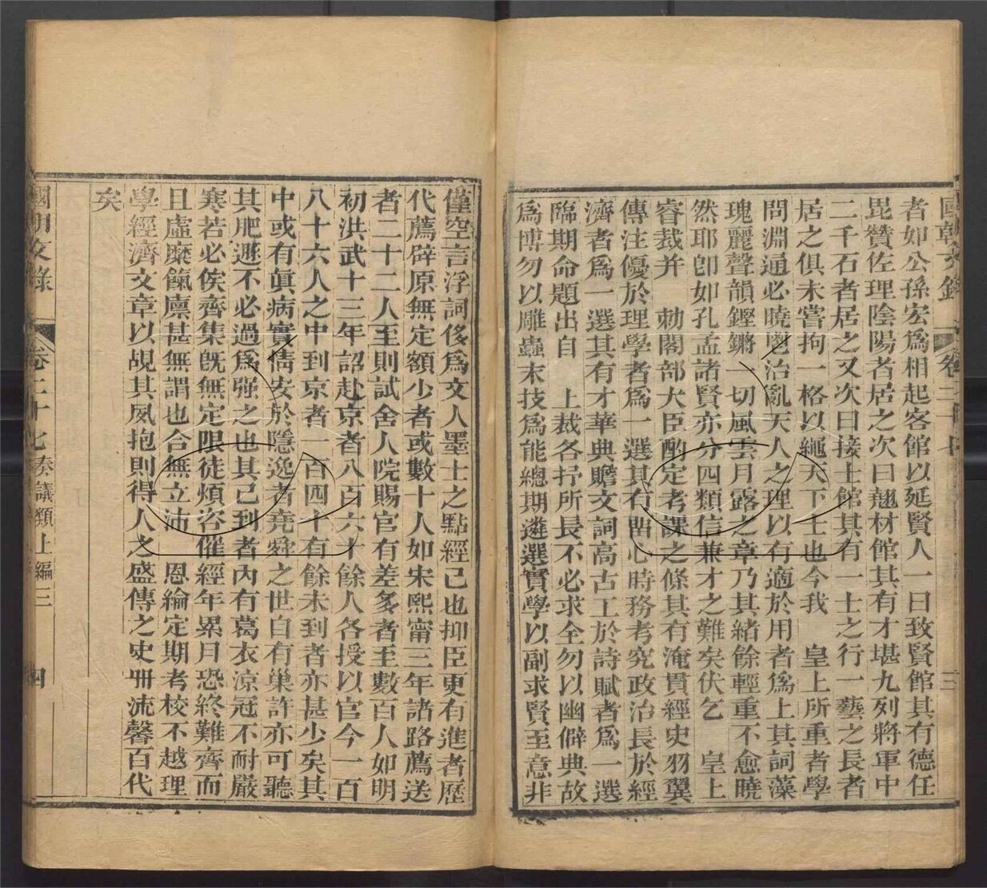 國朝文錄 卷二十七 三
者如公孫宏爲相起客館以延賢人一曰致賢館其有德任
毘贊佐理陰陽者居之次曰翹材館其有才堪九列將軍中
二千石者居之又次曰接士館其有一士之行一藝之長者
居之俱未嘗拘一格以繩天下士也今我 皇上所重者學
問淵通必曉暢治亂天人之理以有適於用者爲上其詞藻
瑰麗聲韻鏗鏘一切風雲月露之章乃其緒餘輕重不愈曉
然耶卽如孔孟諸賢亦分四類信兼才之難矣伏乞 皇上
睿裁并 勅閣部大臣酌定考課之條其有淹貫經史羽翼
傳注優於理學者爲一選其有畱心時務考究政治長於經
濟者爲一選其有才華典贍文詞高古工於詩賦者爲一選
臨期命題出自 上裁各抒所長不必求全勿以幽僻典故
爲博勿以雕蟲末技爲能總期遴選實學以副求賢至意非
僅空言浮詞後爲文人墨士之點經已也抑臣更有進者歷
代薦辟原無定額少者或數十人如宋熙甯三年諸路薦送
者二十二人至則試舍人院賜官有差多者至數百人如明
初洪武十三年詔赴京者八百六十餘人各授以官今一百
八十六人之中到京者一百四十有餘未到者亦甚少矣其
中或有眞病實情安於隱逸者堯舜之世自有巢許亦可聽
其肥遯不必過爲强之也其已到者內有葛衣涼冠不耐嚴
寒若必俟齊集旣無定限徒煩咨催經年累月恐終難齊而
且虛糜餼廩甚無謂也合無立沛 恩綸定期考校不越理
學經濟文章以覘其夙抱則得人之盛傳之史冊流馨百代
矣
國朝文錄 卷二十七 奏議類上編三 四